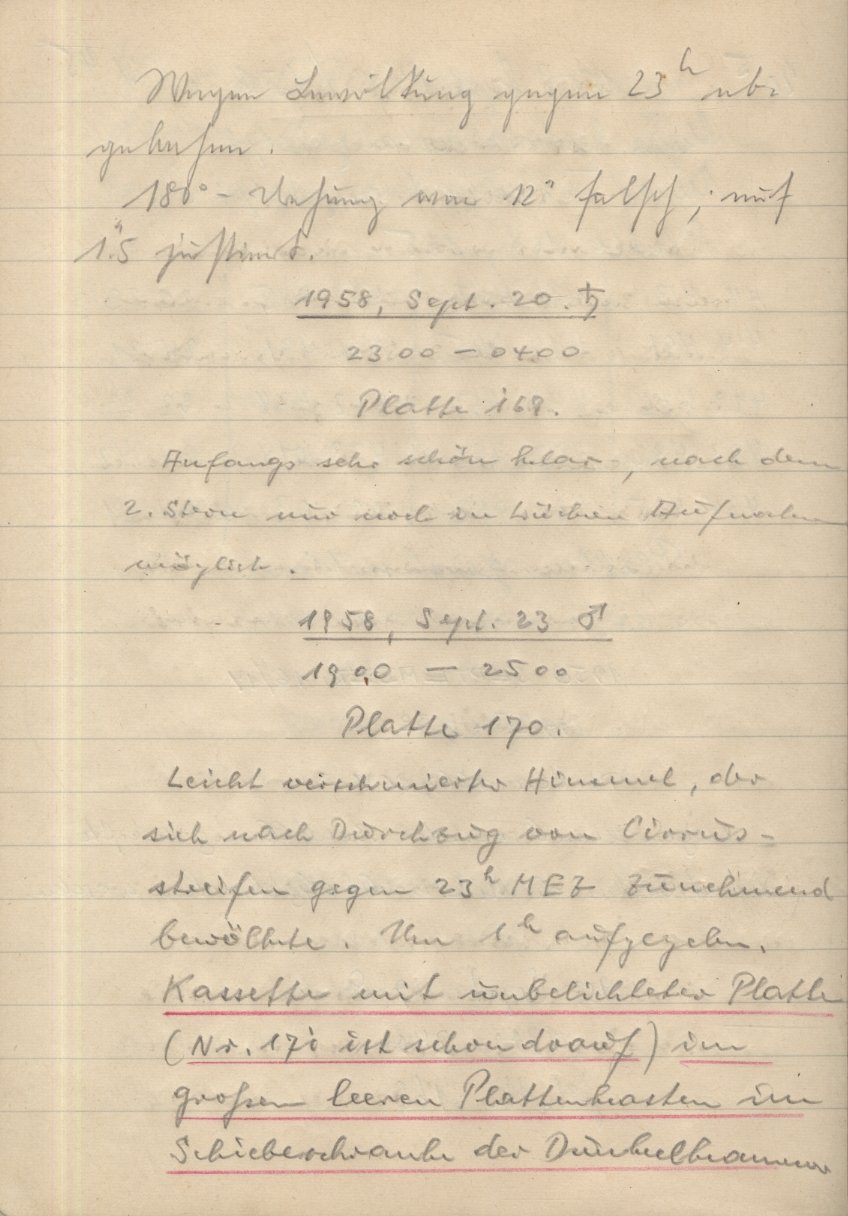 Wegen Bewölkung gegen 23ʰ ab-
gebrochen.
180° - Drehung war 12° falsch; auf
1.5 justiert.
1958, Sept. 20. ♄
23 00 — 04 00
Platte 169.
Anfangs sehr schön klar, nach dem
2. Stern nur noch in Lücken Aufnahmen
möglich.
1958, Sept. 23 ♂
19 00 — 25 00
Platte 170.
Leicht verschmierter Himmel, der
sich nach Durchzug von Cirrus-
streifen gegen 23ʰ MEZ zunehmend
bewölkte. Um 1ʰ aufgegeben.
Kassette mit unbelichteter Platte
(Nr. 171 ist schon drauf) im
großen leeren Plattenkasten im
Schiebeschrank der Dunkelkammer